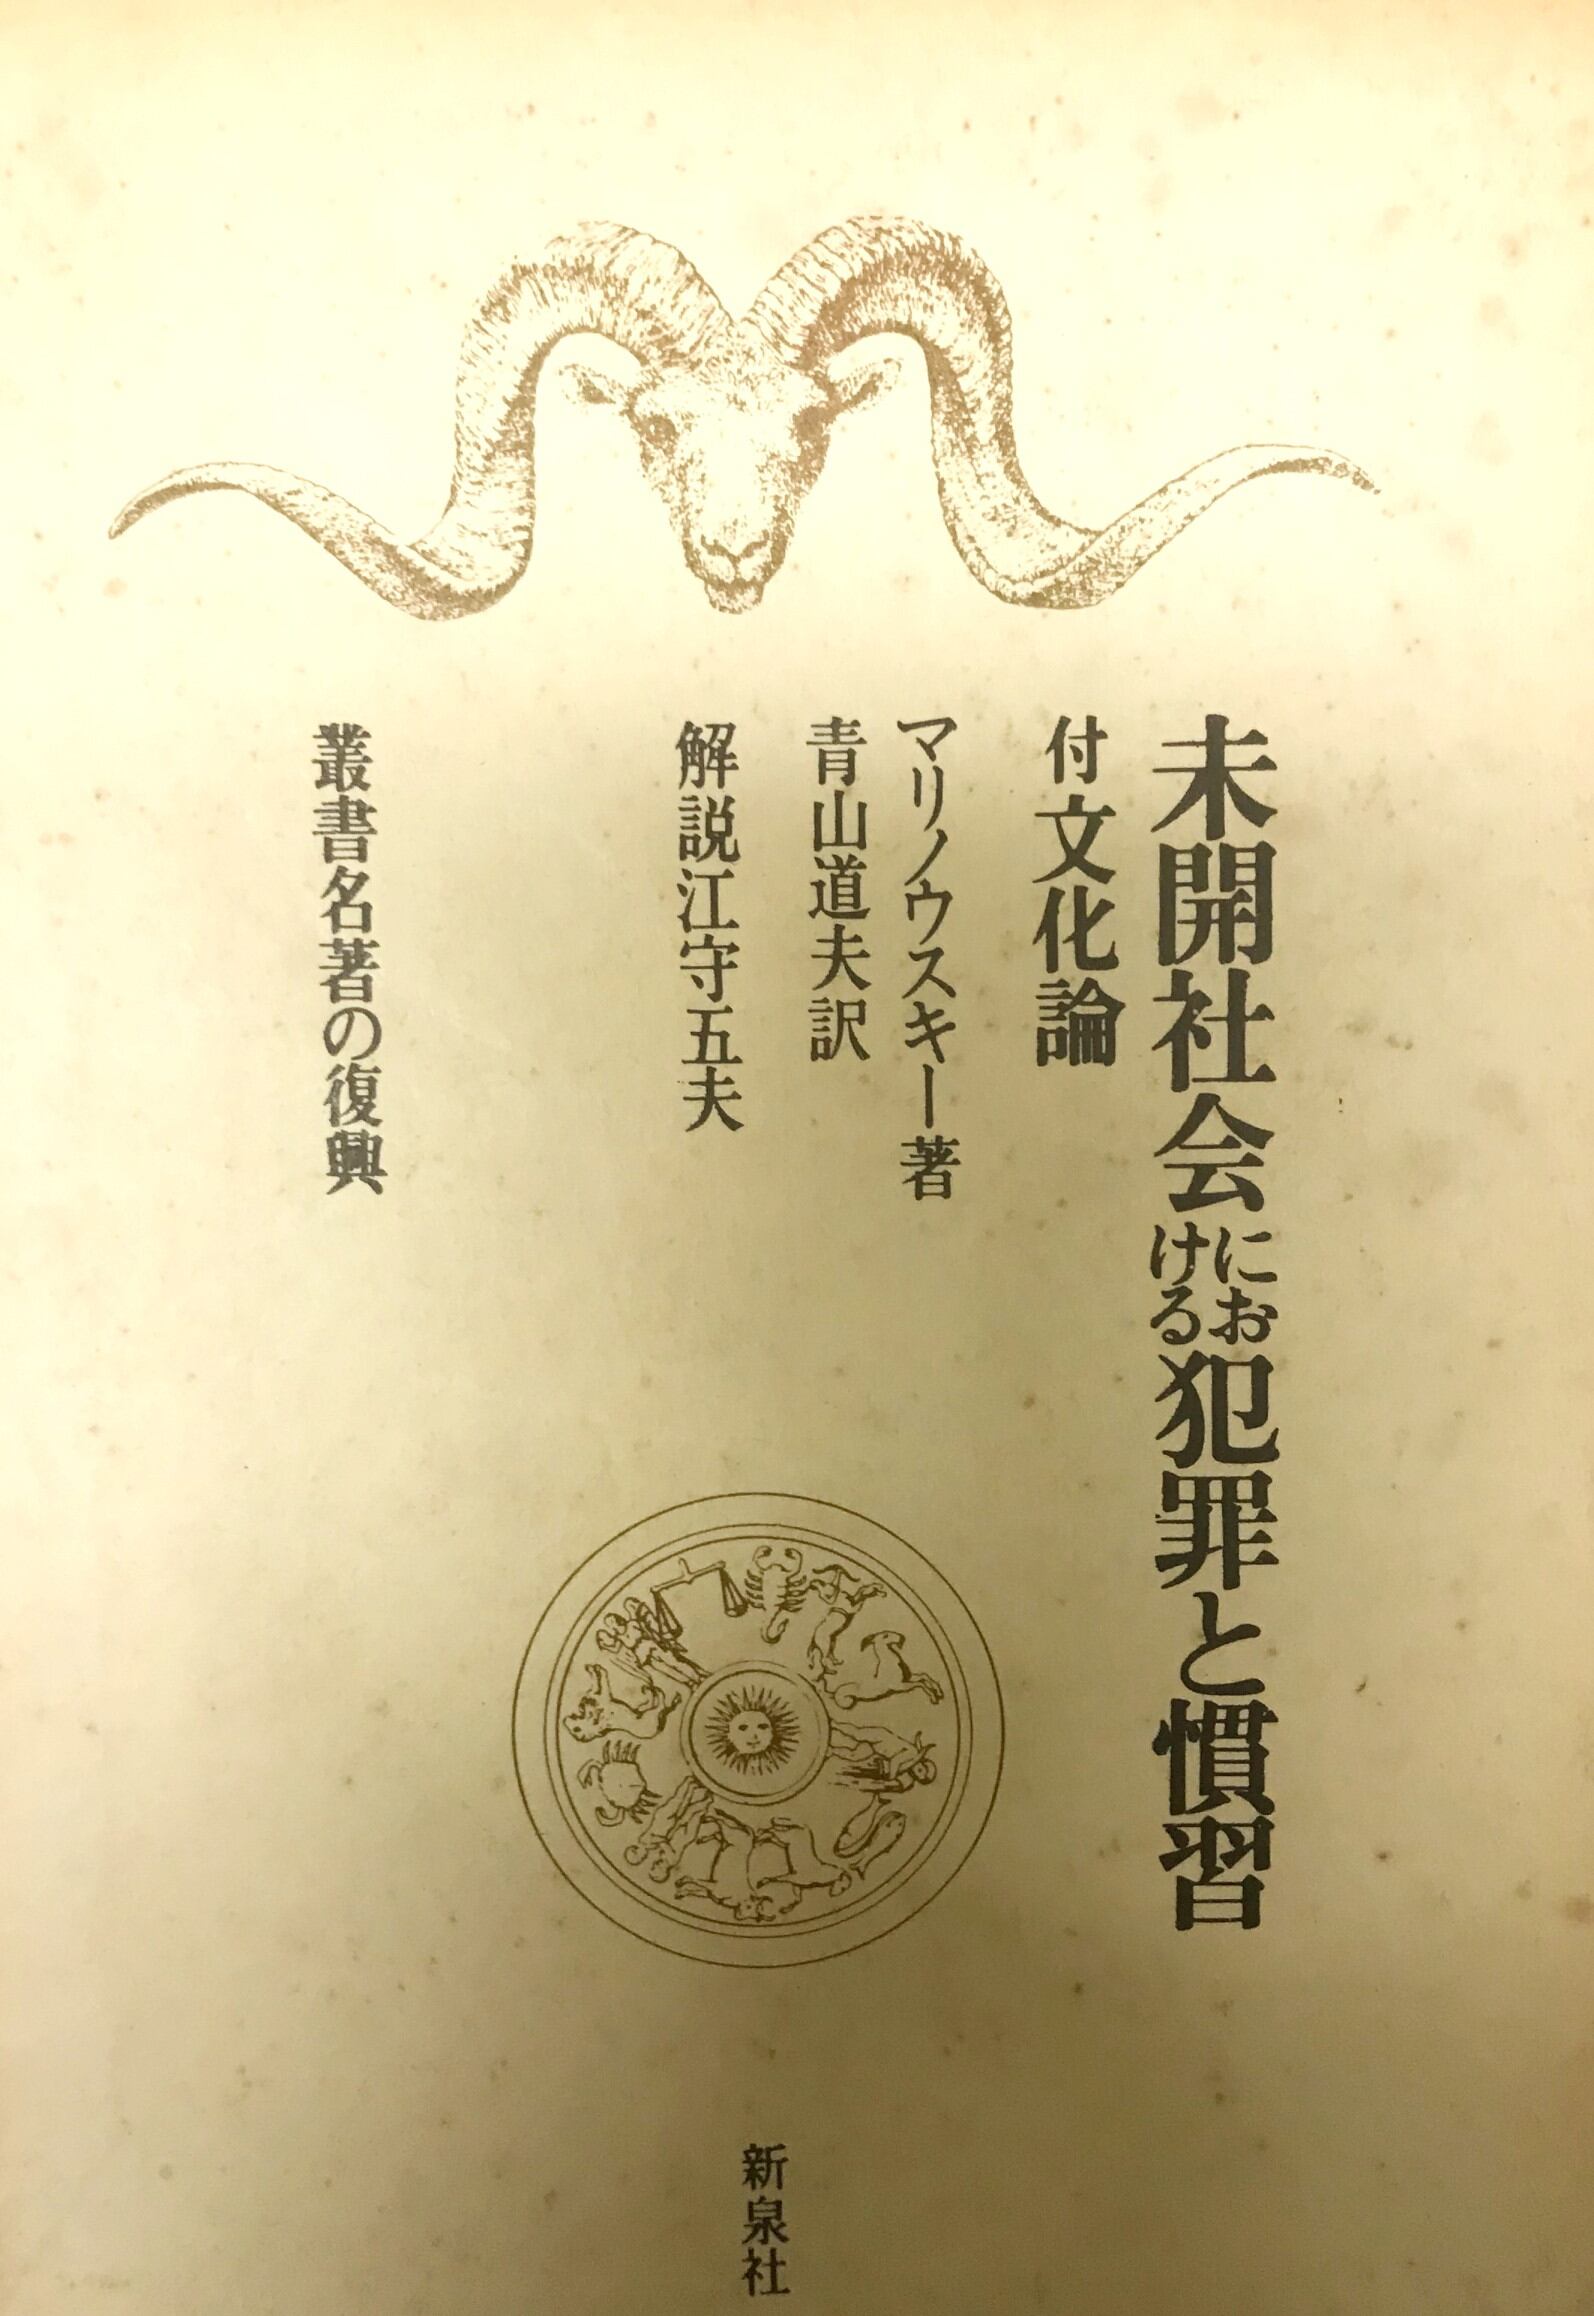 未開社会における犯罪と慣習
付文化論
マリノウスキー著
青山道夫訳
解説江守五夫
叢書名著の復興
新泉社